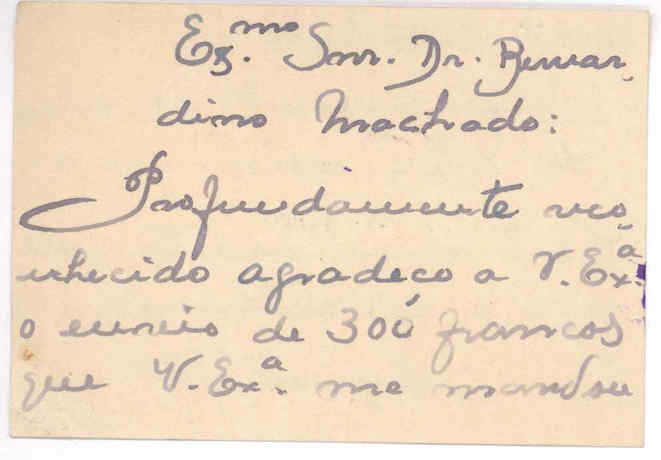 Ex.mo Snr. Dr. Bernar-
dino Machado:
Profundamente reco
nhecido agradeço a V. Ex.ª
o envio de 300 francos
que V. Ex.ª me mandou